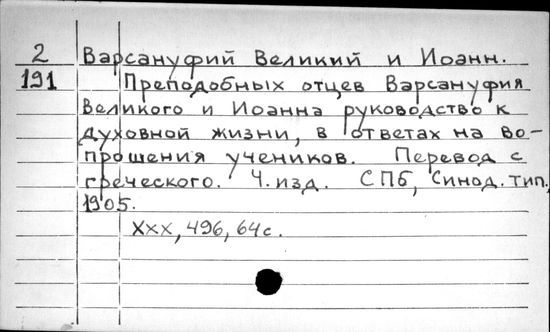 2 Варсануфий Великий и Иоанн.
191 Преподобных отцев Варсануфия
Великого и Иоанна руководство к
духовной жизни, в ответах на во-
прошения учеников. Перевод с
греческого. 4.изд. СПб, Синод. тип.,
1905.
XXX, 496, 64с.